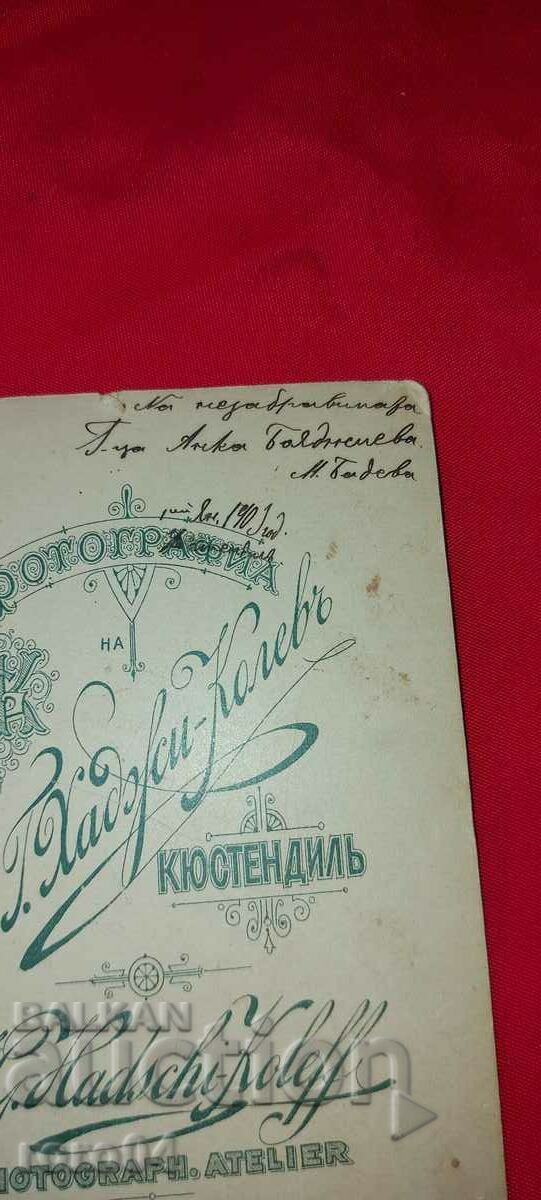 На незабравимата
Г-ца Анка Бояджиева.
М. Бадева
Ян. 1903 год.
ФОТОГРАФИЯ
НА
Г. Хаджи-Колевъ
КЮСТЕНДИЛЬ
BALKAN
auction
G. Hadschi-Koleff
PHOTOGRAPH. ATELIER